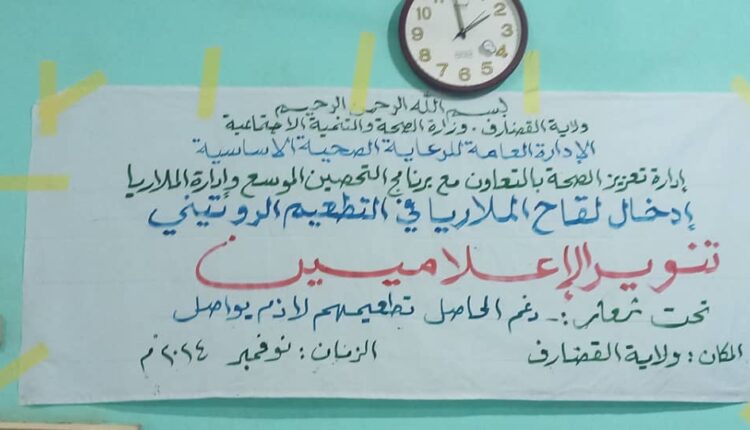 بسم الله الرحمن الرحيم
ولاية القضارف - وزارة الصحة والتنمية الاجتماعية
الإدارة العامة للرعاية الصحية الاساسية
إدارة تعزيز الصحة بالتعاون مع برنامج التحصين الموسع وإدارة الملاريا
إدخال لقاح الملاريا في التطعيم الروتيني
تنوير الإعلاميين
تحت شعار :- رغم الحاصل تطعيمهم لازم يواصل
المكان : ولاية القضارف الزمان : نوفمبر ٢٠٢٤م